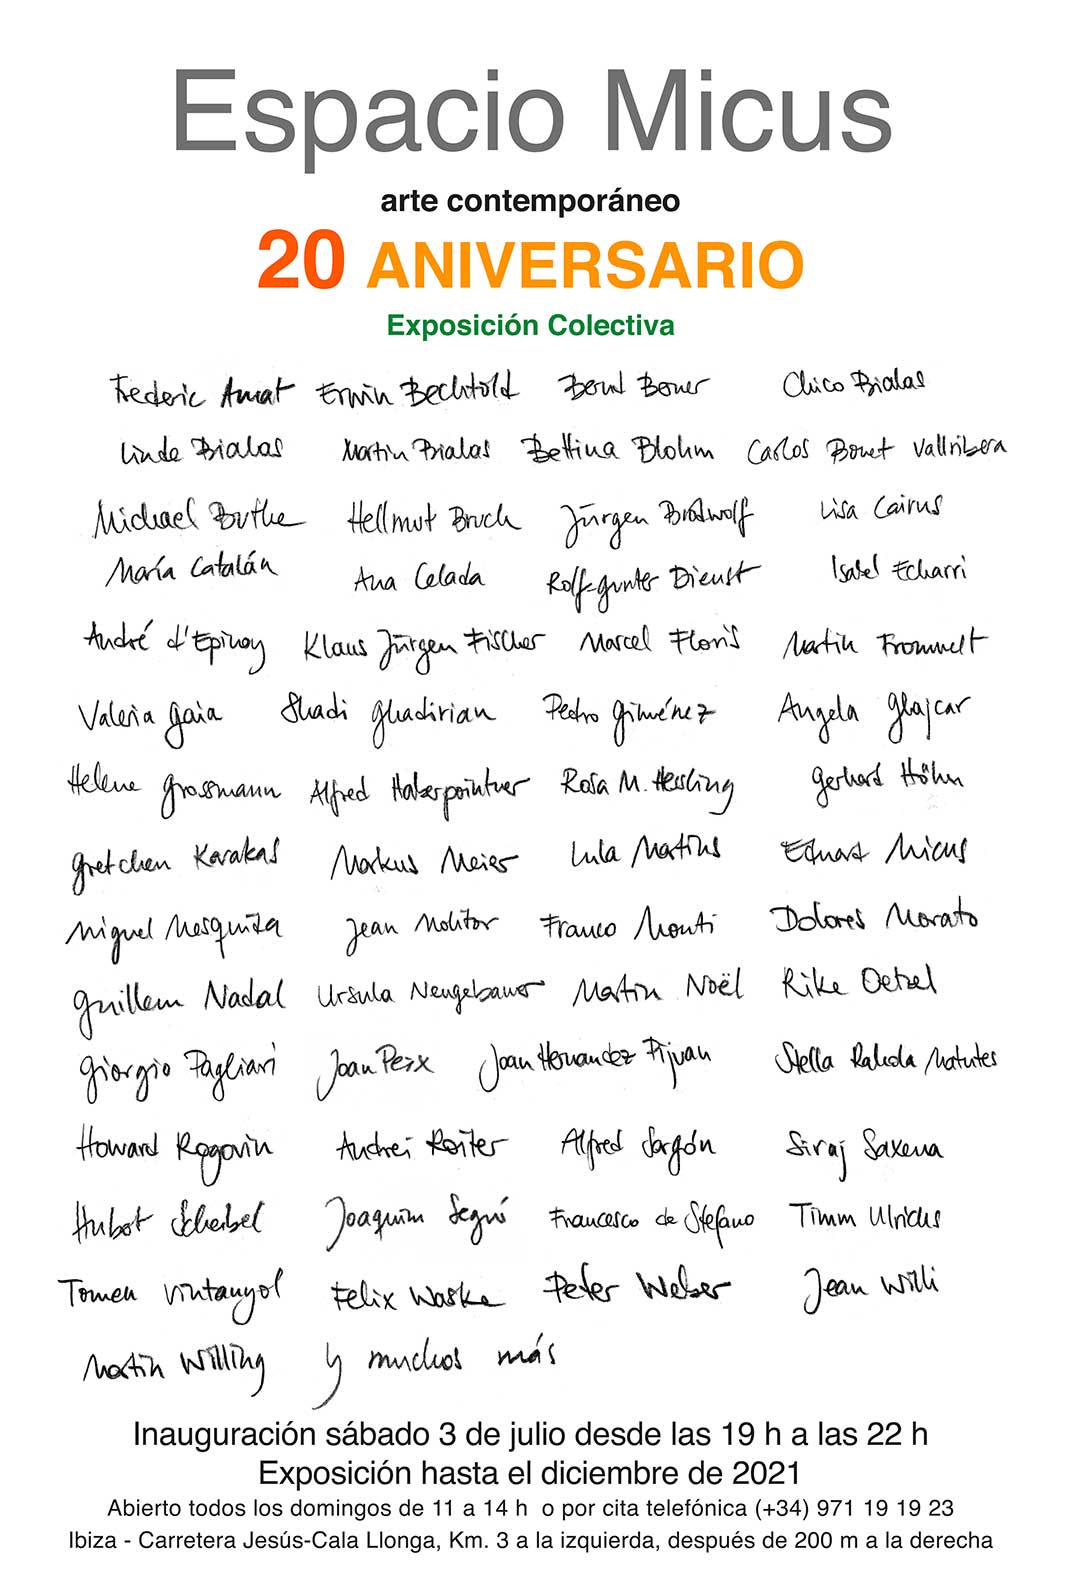 Espacio Micus
arte contemporáneo
20 ANIVERSARIO
Exposición Colectiva
Frederic Amat Erwin Bechtold Bernd Berner Chico Bialas
Linde Bialas Martin Bialas Bettina Blohm Carlos Bonet Vallribera
Michael Buthe Hellmut Bruch Jürgen Brodwolf Lisa Cairns
María Catalán Ana Celada Rolf-gunter Dienst Isabel Echarri
André d'Epinoy Klaus Jürgen Fischer Marcel Floris Martin Frommelt
Valeria Gaia Shadi Ghadirian Pedro Giménez Angela Glajcar
Helene Grossmann Alfred Haberpointner Rosa M. Hessling Gerhard Höhn
Gretchen Karakas Markus Meier Lula Martins Eduard Micus
Miguel Mesquita Jean Molitor Franco Monti Dolores Morato
Guillem Nadal Ursula Neugebauer Martin Noël Rike Oetzel
Giorgio Pagliari Joan Peix Joan Hernandez Pijuan Stella Rahola Matutes
Howard Rogovin Andrei Roiter Alfred Sargón Siraj Saxena
Hubert Scheibel Joaquim Seguí Francesco de Stefano Timm Ulrichs
Tomeu Vintanyol Felix Waske Peter Weber Jean Willi
Martin Willing y muchos más
Inauguración sábado 3 de julio desde las 19 h a las 22 h
Exposición hasta el diciembre de 2021
Abierto todos los domingos de 11 a 14 h o por cita telefónica (+34) 971 19 19 23
Ibiza - Carretera Jesús-Cala Llonga, Km. 3 a la izquierda, después de 200 m a la derecha